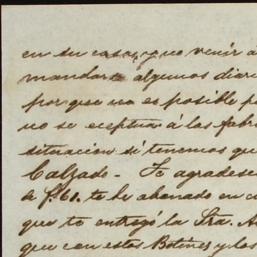 en su casa, y no venir a
mandarte algunos diari
porque no es posible p
no se eceptua á las fabri
situacion si tenemos qu
Calzado - Te agradesc
de $.61. te he abonado en c
que te entregó la Sra. A
que con estos Botines y los